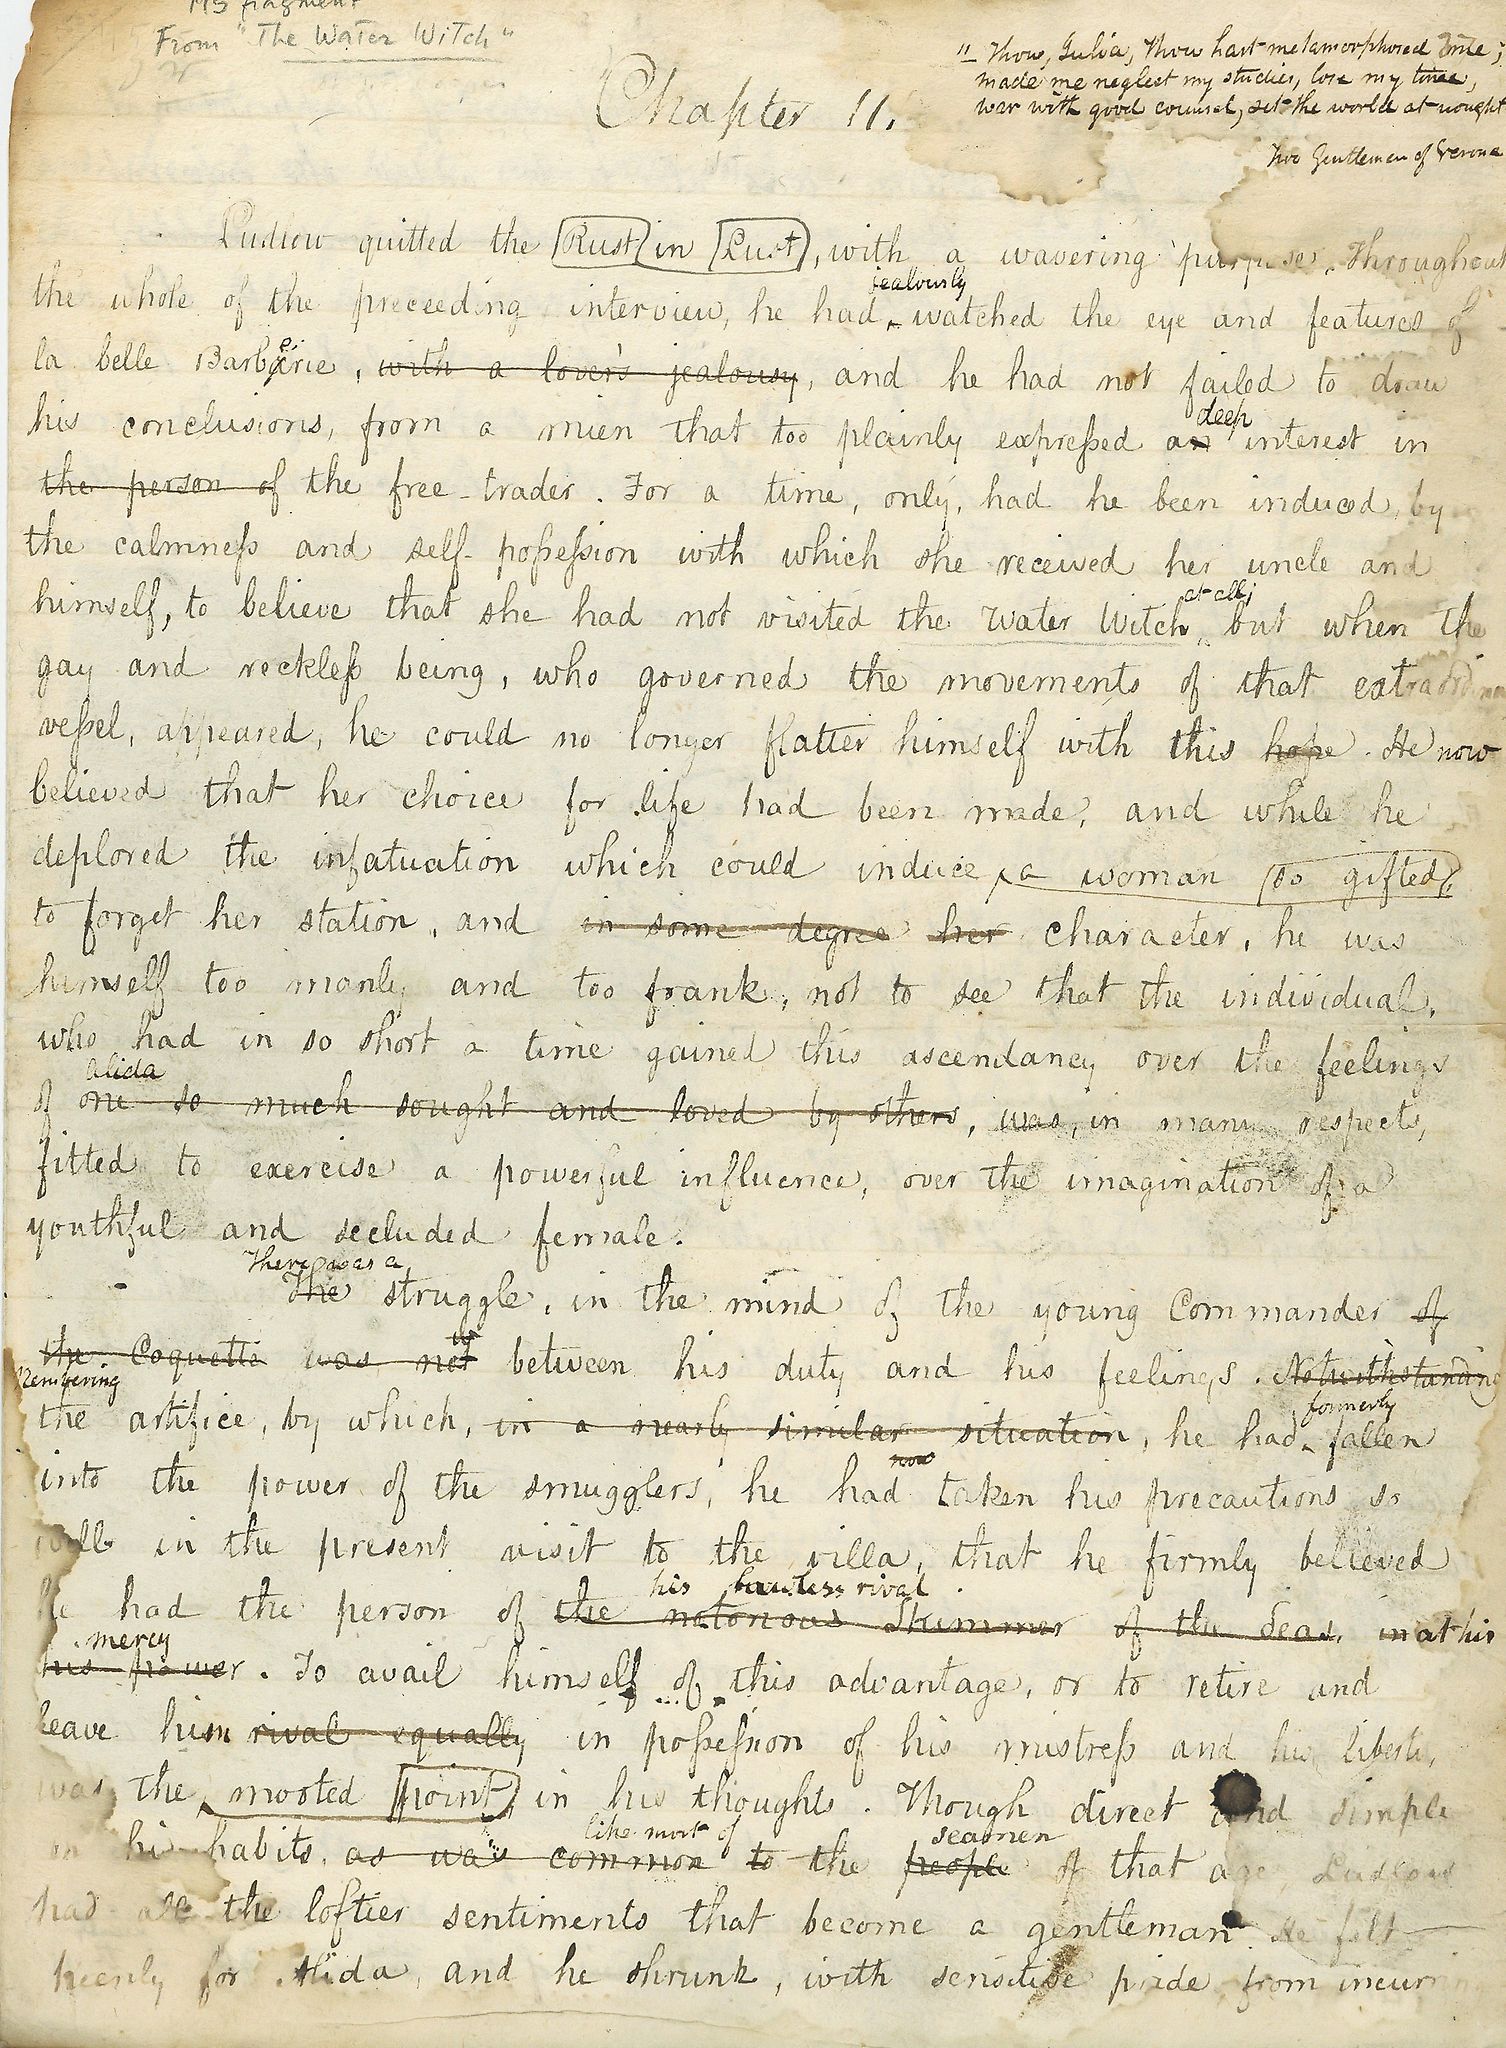 MS fragment
From "The Water Witch"
" Thou, Julia, thou hast metamorphosed me;
made me neglect my studies, lose my time,
war with good counsel, set the world at nought
Two Gentlemen of Verona
Chapter 11.
Ludlow quitted the Rust in Lust, with a wavering purpose. Throughout
jealously
the whole of the preceeding interview, he had ‸ watched the eye and features of
la belle Barberie, with a lover's jealousy, and he had not failed to draw
deep
his conclusions, from a mien that too plainly expressed an interest in
the person of the free-trader. For a time, only, had he been induced, by
the calmness and self-possession with which she received her uncle and
at all;
himself, to believe that she had not visited the Water Witch, but when the
gay and reckless being, who governed the movements of that extraordina
vessel, appeared, he could no longer flatter himself with this hope. He now
believed that her choice for life had been made, and while he
deplored the infatuation which could induce, a woman so gifted,
to forget her station, and in some degree her character, he was
himself too manly and too frank, not to see that the individual,
who had in so short a time gained this ascendancy over the feelings
Alida
of one so much sought and loved by others, was, in many respects,
fitted to exercise a powerful influence, over the imagination of a
youthful and secluded female.
There was a
The struggle, in the mind of the young Commander of
the Coquette was not between his duty and his feelings. Notwithstanding
Rembering
formerly
the artifice, by which, in a nearly similar situation, he had ‸ fallen
now
into the power of the smugglers, he had taken his precautions so
well in the present visit to the villa, that he firmly believed
his lawless rival
he had the person of the notorious Skimmer of the Seas, in at his
mercy
his power. To avail himself of this advantage, or to retire and
leave him rival equally in possession of his mistress and his liberty,
was the mooted point in his thoughts. Though direct and simple
like most of seamen
in his habits, as was common to the people of that age, Ludlow
had all the loftier sentiments that become a gentleman. He felt
keenly for Alida, and he shrunk, with sensitive pride, from incurrin